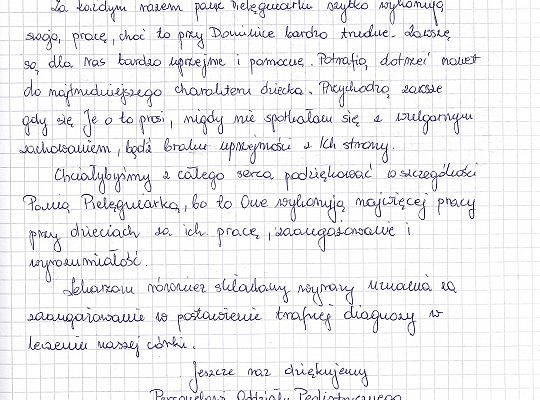 Za każdym razem panie Pielęgniarki szybko wykonują
swoją, pracę, choć to przy Dominice bardzo trudne. Zawsze
są dla nas bardzo uprzejme i pomocne. Potrafią dotrzeć nawet
do najtrudniejszego charakteru dziecka. Przychodzą zawsze
gdy się Je o to prosi, nigdy nie spotkałam się z wulgarnym
zachowaniem, bądź braku uprzejmości z Ich strony.
Chciałybyśmy z całego serca podziękować w szczególności
Panią Pielęgniarką, bo to One wykonują najwięcej pracy
przy dzieciach za ich pracę, zaangażowanie i
wyrozumiałość.
Lekarzom również składamy wyrazy uznania za
zaangażowanie w postawienie trafnej diagnozy w
leczeniu naszej córki.
Jeszcze raz dziękujemy
Personelowi Oddziału Pediatrycznego